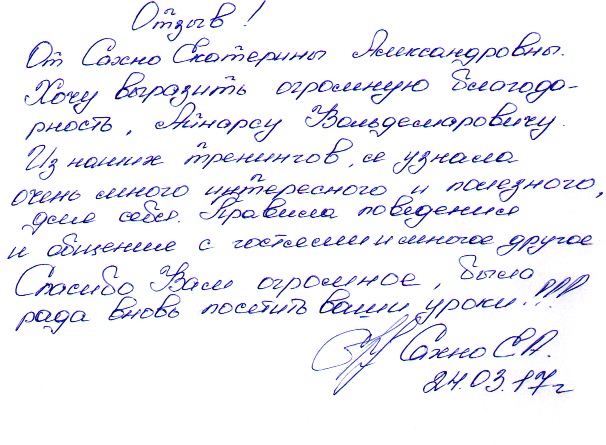 Отзыв!
От Сахно Екатерины Александровны.
Хочу выразить огромную благода-
рность, Айнарсу Вольдемаровичу.
Из наших тренингов, я узнала
очень много интересного и полезного,
для себя. Правила поведения
и общение с гостями и многое другое
Спасибо Вам огромное, была
рада вновь посетить ваши уроки!!!
Сахно Е.А.
24.03.17г